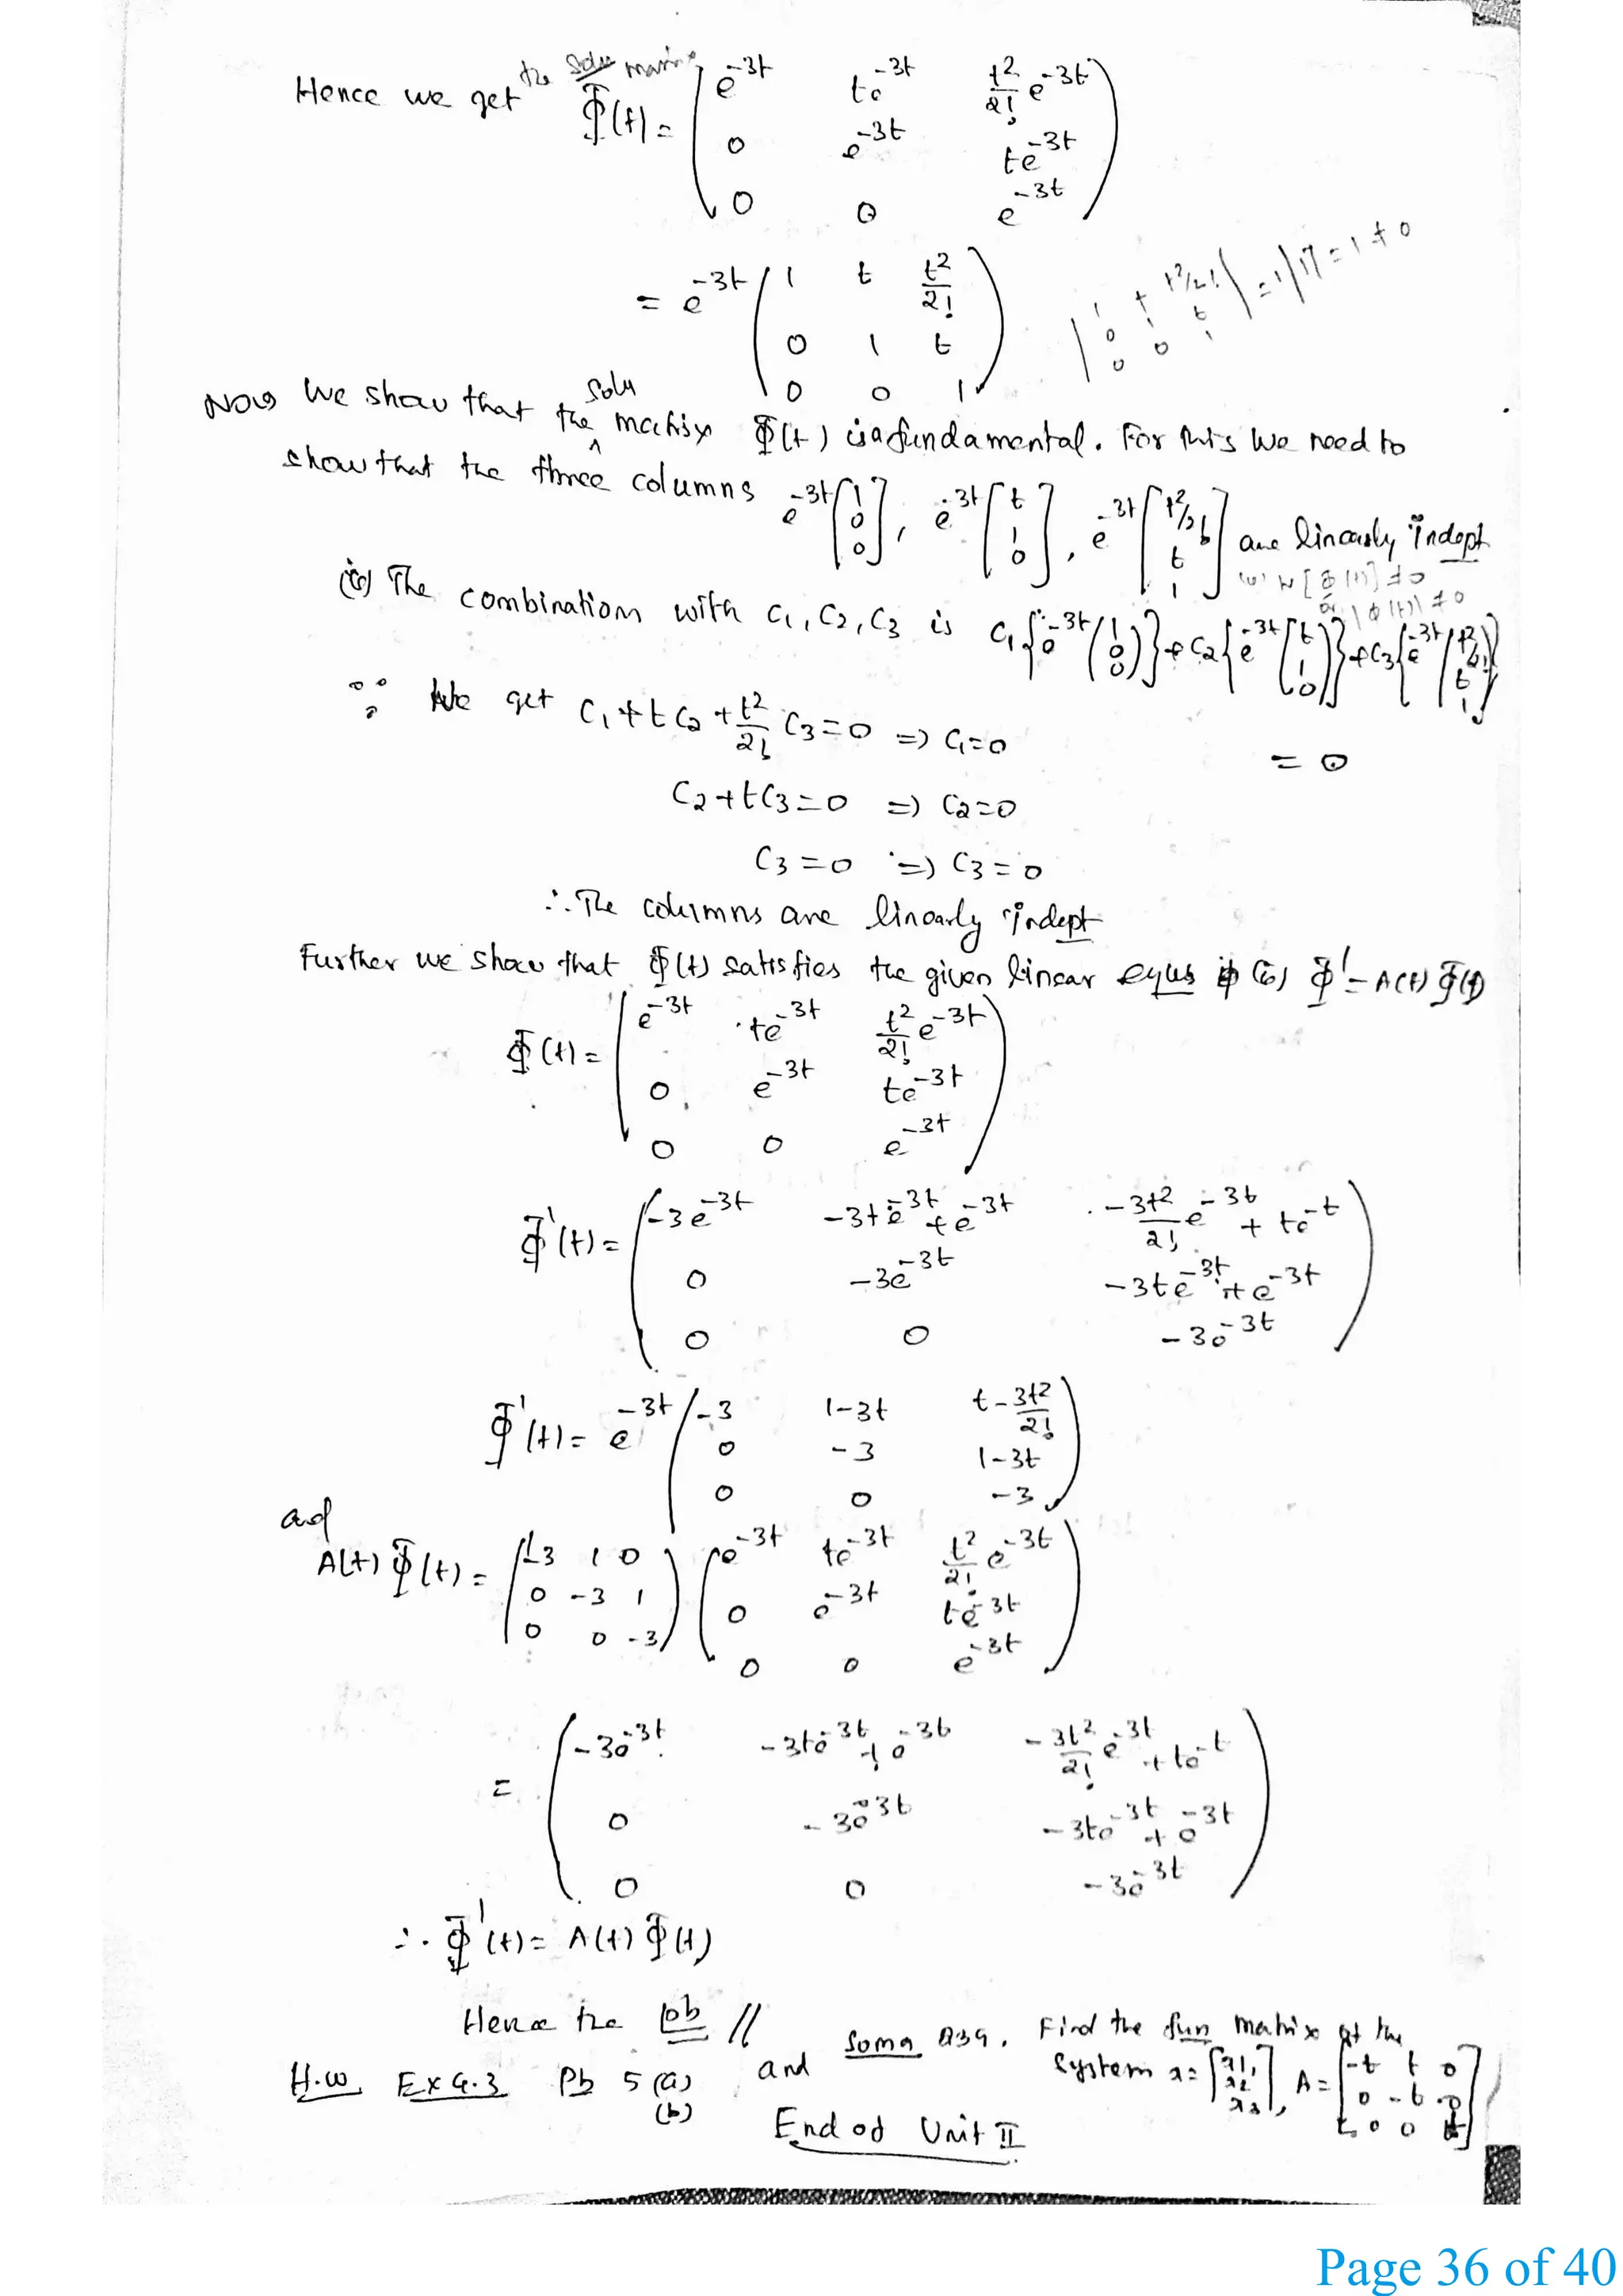 Hence we get the soln matrix Φ(t) = ( e^-3t te^-3t t²/2! e^-3t
0 e^-3t te^-3t
0 0 e^-3t )
= e^-3t ( 1 t t²/2!
0 1 t
0 0 1 )
| 1 t t²/2!
0 1 t
0 0 1 | = 1|1| = 1 ≠ 0
Now we show that the soln matrix Φ(t) is a fundamental. For this we need to
show that the three columns e^-3t [1 0 0], e^-3t [t 1 0], e^-3t [t²/2! t 1] are linearly indept
(ie) W[Φ(t)] ≠ 0
or |Φ(t)| ≠ 0
(ie) The combination with C1, C2, C3 is C1{e^-3t (1 0 0)} + C2{e^-3t (t 1 0)} + C3{e^-3t (t²/2! t 1)}
= 0
∵ We get C1 + tC2 + t²/2! C3 = 0 => C1 = 0
C2 + tC3 = 0 => C2 = 0
C3 = 0 => C3 = 0
∴ The columns are linearly indept
Further we show that Φ(t) satisfies the given linear eqns (ie) Φ' = A(t) Φ(t)
Φ(t) = ( e^-3t te^-3t t²/2! e^-3t
0 e^-3t te^-3t
0 0 e^-3t )
Φ'(t) = ( -3e^-3t -3te^-3t + e^-3t -3t²/2! e^-3t + te^-t
0 -3e^-3t -3te^-3t + e^-3t
0 0 -3e^-3t )
Φ'(t) = e^-3t ( -3 1-3t t-3t²/2!
0 -3 1-3t
0 0 -3 )
and
A(t) Φ(t) = ( -3 1 0
0 -3 1
0 0 -3 ) ( e^-3t te^-3t t²/2! e^-3t
0 e^-3t te^-3t
0 0 e^-3t )
= ( -3e^-3t -3te^-3t + e^-3t -3t²/2! e^-3t + te^-t
0 -3e^-3t -3te^-3t + e^-3t
0 0 -3e^-3t )
∴ Φ'(t) = A(t) Φ(t)
Hence the pb //
H.W. Ex 4.3 Pb 5 (a)
(b)
and Find the fun matrix of the
system x = [x1, x2 x3], A = [-t t 0
0 -t
0 0
End of Unit II
Page 36 of 40